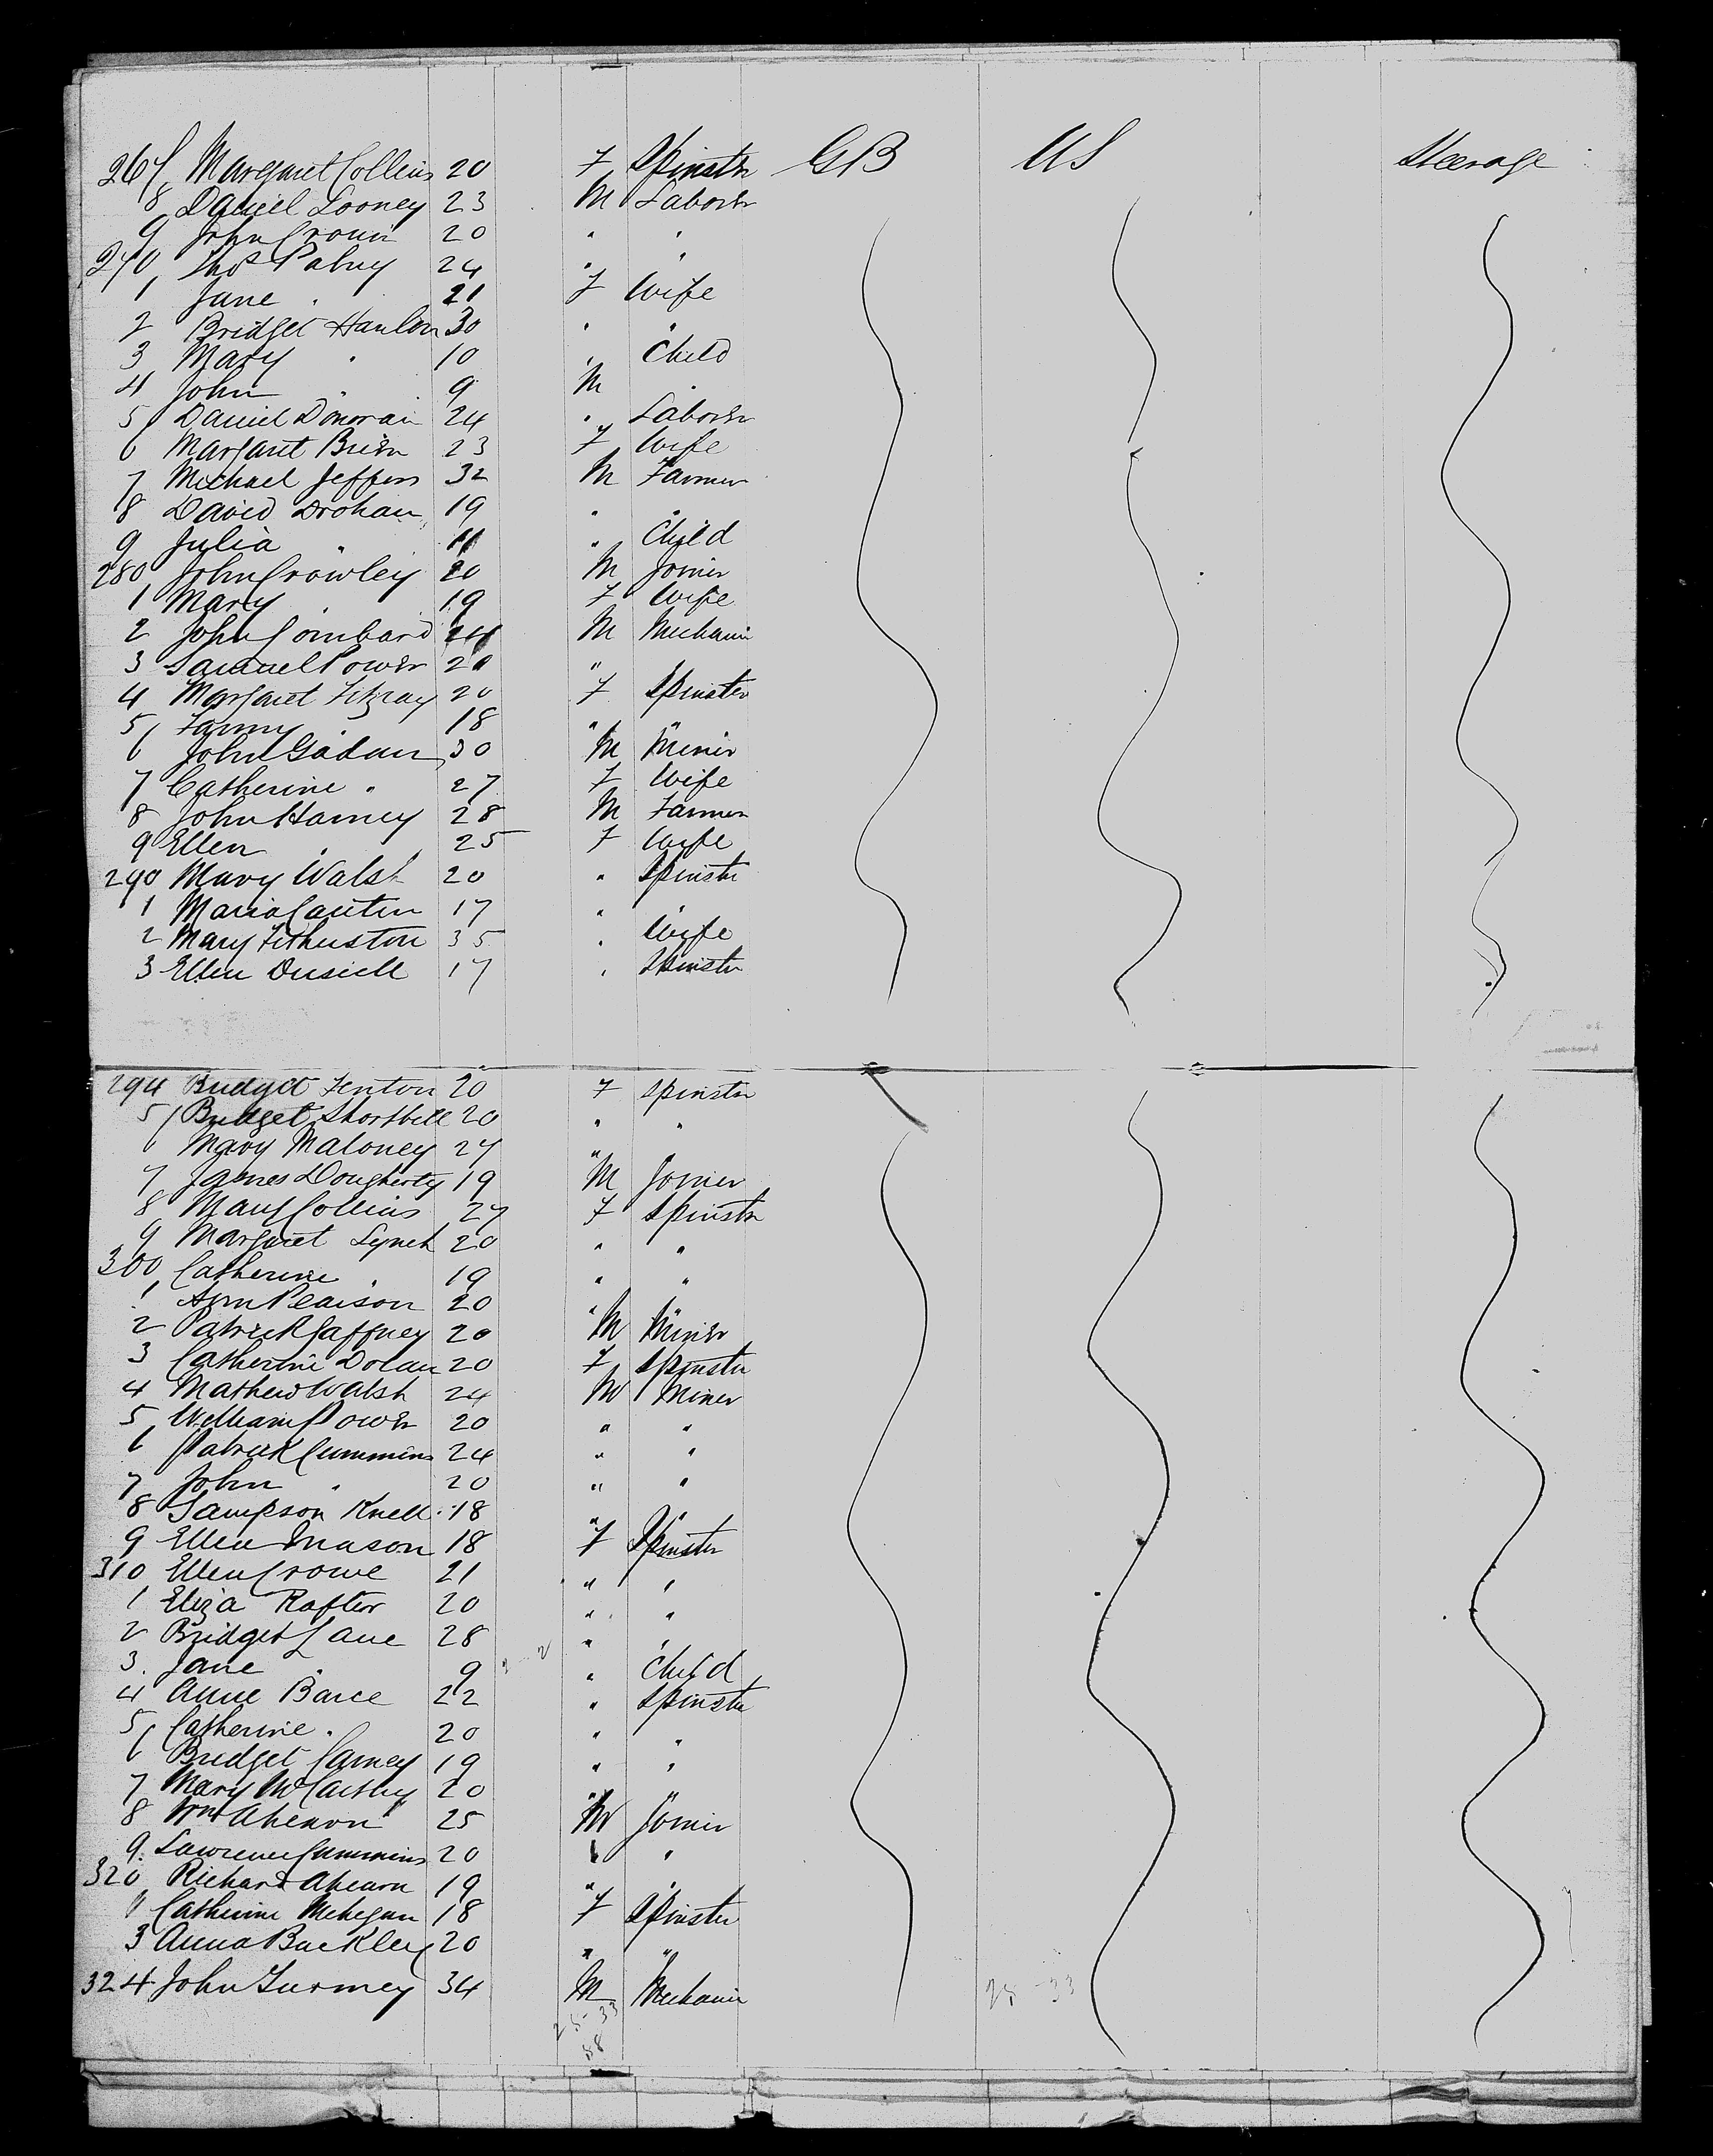 267 Margaret Collins 20 F Spinstr GB US Steerage
8 Daniel Looney 23 M Laborer
9 John Cronin 20 " "
270 Thos Pabny 24 " "
1 Jane " 21 F Wife
2 Bridget Hanlon 30 " "
3 Mary " 10 " Child
4 John " 9 M "
5 Daniel Donovan 24 " Laborer
6 Margaret Brien 23 F Wife
7 Michael Jeffers 32 M Farmer
8 David Drohan 19 " "
9 Julia " 11 " Child
280 John Crowley 20 M Joiner
1 Mary " 19 F Wife
2 John Lombard 24 M Mechanic
3 Samuel Power 20 "
4 Margaret Fitzray 20 F Spinster
5 Fanny " 18 " "
6 John Gadan 30 M Miner
7 Catherine " 27 F Wife
8 John Harney 28 M Farmer
9 Ellen " 25 F Wife
290 Mary Walsh 20 " Spinstr
1 Maria Cantin 17 " "
2 Mary 35 " Wife
3 Ellen 17 " Spinstr
294 Bridget Fenton 20 F Spinstr
5 Bridget Shortbill 20 " "
6 Mary Maloney 27 "
7 James Dougherty 19 M Joiner
8 Mary Collins 27 F Spinstr
9 Margaret Lynch 20 " "
300 Catherine " 19 " "
1 Ann Pearson 20 " "
2 Patrick Gaffney 20 M Miner
3 Catherine Dolan 20 F Spinstr
4 Mathew Walsh 24 M Miner
5 William Power 20 " "
6 Patrick Cummins 24 " "
7 John " 20 " "
8 Sampson Knell 18 " "
9 Ellen Mason 18 F Spinster
310 Ellen Crowe 21 " "
1 Eliza Rafter 20 " "
2 Bridget Lane 28 " "
3 Jane " 9 " Child
4 Anne Barce 22 " Spinstr
5 Catherine " 20 " "
6 Bridget Carney 19 " "
7 Mary McCarthy 20 " "
8 Wm Ahearn 25 M Joiner
9 Lawrence Cummins 20 " "
320 Richard Ahearn 19 " "
1 Catherine Mehegan 18 F Spinster
3 Anna Buckley 20 " "
324 John Gurney 34 M Mechanic
25-33 25-33
58